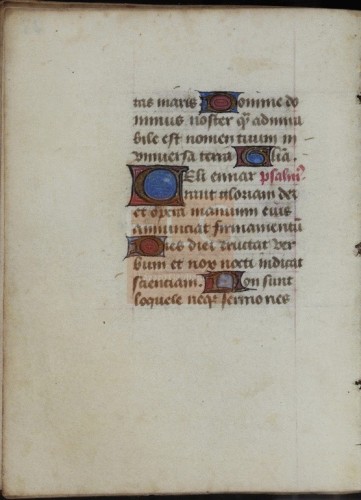 tas maris Domine do
minus noster qz admira
bile est nomen tuum in
vniuersa terra Glia.
Celi enar psalm9
rant gloriam dei
et opera manuum eius
annunciat firmamentū
Dies diei eructat ver
bum et nox nocti indicat
scientiam. Non sunt
loquele neqz sermones